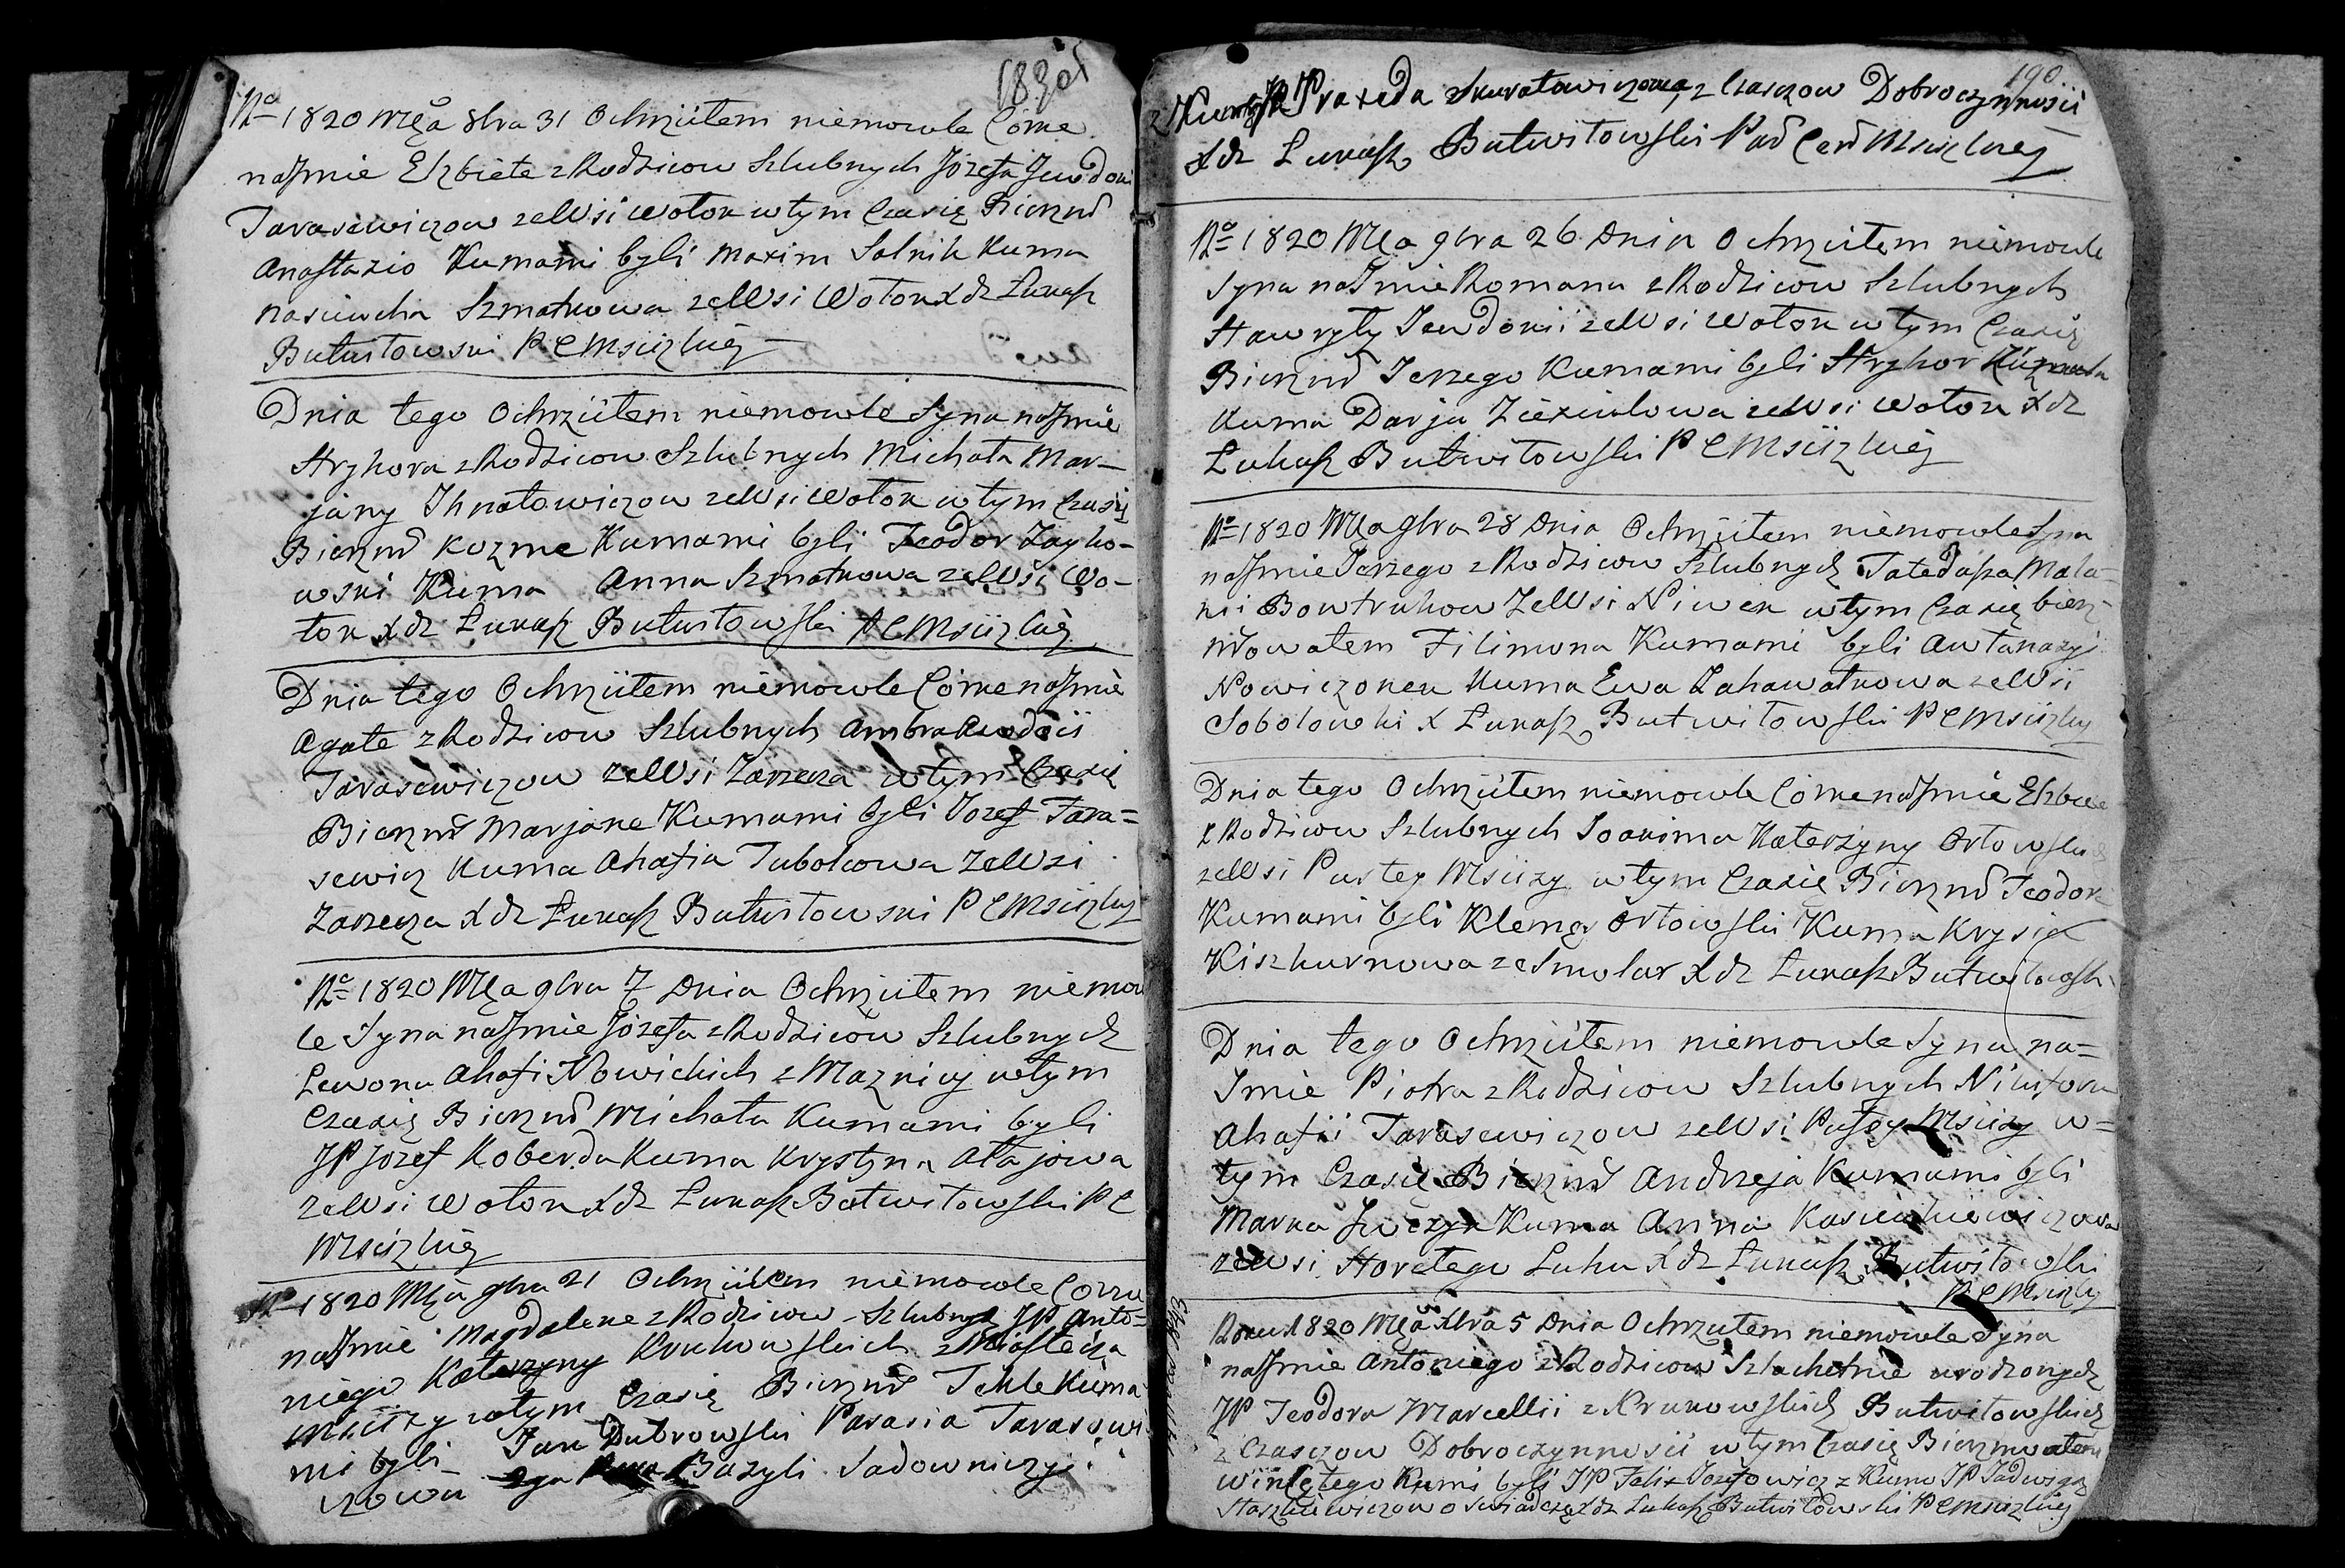 1820 Mca 8bra 31 Ochrzciłem niemowle Córke
naJmie Elzbiete z Rodzicow Szlubnych Józefa Jewdoki
Tarasewiczow zeWsi Wołok wtym Czasię Bierzmł
Anastazio Kumami byli Maxim Salnik Kuma
Szmatkowa zeWsi Wołok Xdz Łukasz
Butwiłowski P C Mscizkiéj
Dnia tego Ochrzciłem niemowle Syna naJmie
Hryhora z Rodzicow Szlubnych Michała Mar-
jany Ihnatowiczow zeWsi Wołok wtym Czasię
Bierzmł Kozme Kumami byli Teodor Zayko-
wski Kuma Anna Szmatkowa zeWsi Wo-
łok Xdz Łukasz Butwiłowski P C Mscizkiéj
Dnia tego Ochrzciłem niemowle Córke naJmie
Agate z Rodzicow Szlubnych
Tarasewiczow zeWsi Zarzecza wtym Czasię
Bierzmł Marjane Kumami byli Jozef Tara=
sewicz Kuma Ahafia Tubolcowa zeWsi
Zarzecza Xdz Łukasz Butwiłowski P C Mscizkiy
No 1820 Mca 9bra 7 Dnia Ochrzciłem niemow
le Syna naJmie Józefa z Rodziców Szlubnych
Lewona Ahafi Nowickich z Maznicy wtym
Czasię Bierzmł Michała Kumami byli
JP Jozef Koberda Kuma Krystyna Ałajowa
zeWsi Wołok Xdz Łukasz Butwiłowski P C
Mscizkiéj
No 1820 Mca 9bra 21 Ochrzciłem niemowle
naJmie Magdalene z Rodzicow Szlubnych JP Anto=
niego Katerzyny Krukowskich z Miasteczka
Mscizy wtym Czasię Bierzmł Tekle Kuma
mi byli Jan Dubrowski Parasia Tarasewi
czowa Bazyli Sadowniczyj
190
z Kumą JP Praxeda Skuratowiczowa z Czaszow Dobroczynnosci
Xdz Łukasz Butwiłowski Par Cer Mscizkiéj
No 1820 Mca 9bra 26 Dnia Ochrzciłem niemowle
Syna naJmie Romana z Rodzicow Szlubnych
Hawryły Jewdokii zeWsi Wołok wtym Czasię
Bierzmł Jerzego Kumami byli Hryhor
Kuma Darja Ziexiulowa zeWsi Wołok Xdz
Łukasz Butwiłowski P C Mscizkiéj
No 1820 Mca 9bra 28 Dnia Ochrzciłem niemowle Syna
naJmie Jerzego z Rodzicow Szlubnych Tatedusza Mala=
nii Bowtrukow zeWsi Niwek wtym Czasię bierz=
mowałem Filimona Kumami byli Awtanazyi
Nowiczonek Kuma Ewa Łahawatkowa zeWsi
Sobolowki X Łukasz Butwiłowski P C Mscizkiy
Dnia tego Ochrzciłem niemowle Córke naJmie Elzbiete
z Rodzicow Szlubnych Joakima Katerzyny Orłowskich
zeWsi Pustey Mscizy wtym Czasię Bierzmł Teodor
Kumami byli Klemę Orłowski Kuma Krysia
Kiszkurnowa zeSmolar Xdz Łukasz Butwiłowski
Dnia tego Ochrzciłem niemowle Syna na=
Jmie Piotra z Rodzicow Szlubnych Nikifora
Ahafii Tarasewiczow zeWsi Pustey Mscizy w=
tym Czasię Bierzmł Andrzeja Kumami byli
Marka Kuma Anna
zeWsi Horełego Luhu Xdz Łukasz Butwiłowski
P C Mscizkiy
Roku 1820 Mca Xbra 5 Dnia Ochrzciłem niemowle Syna
naJmie Antoniego z Rodzicow Szlachetnie urodzonych
JP Teodora Marcellii z Krukowskich Butwiłowskich
z Czaszow Dobroczynnosci wtym Czasię Bierzmowałem
Wincętego Kumi byli JP Felix Jozefowicz z Kumo JP Jadwigą
Staszkiewiczowo Swiadczę Xdz Łukasz Butwiłowski P C Mscizkiej